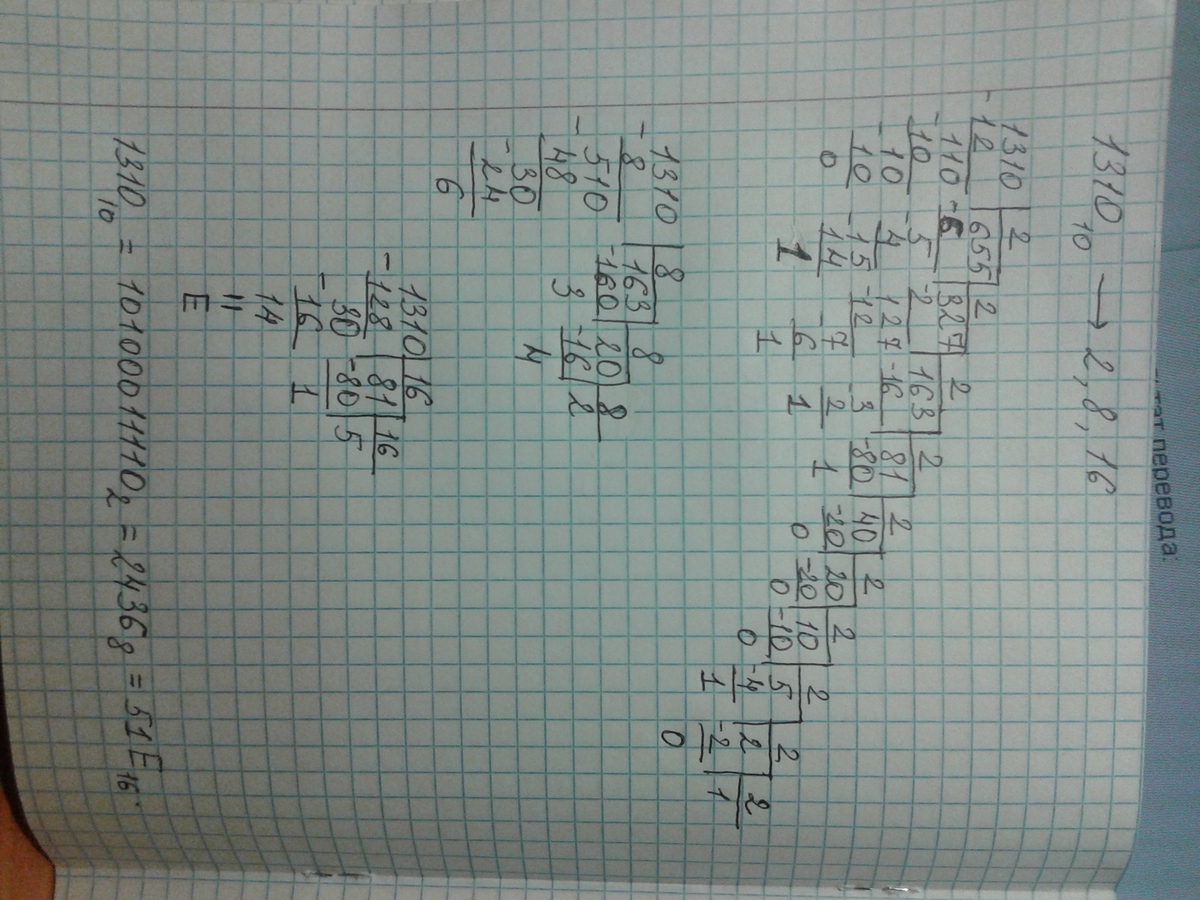 тат перевода:
1310₁₀ → 2, 8, 16
1310 | 2
-12 655 | 2
-110 -6 327 | 2
-10 -5 -2 163 | 2
-10 4 127 -16 81 | 2
10 -15 -12 -3 -80 40 | 2
0 14 -7 2 1 -40 20 | 2
1 6 1 0 -20 10 | 2
1 0 -10 5 | 2
0 -4 2 | 2
1 -2 1
0
-1310 | 8
8 163 | 8
-510 -160 20 | 8
48 3 -16 2
-30 4
24
6
-1310 | 16
128 81 | 16
-30 -80 5
16 1
14
॥
E
1310₁₀ = 10100011110₂ = 2436₈ = 51E₁₆.